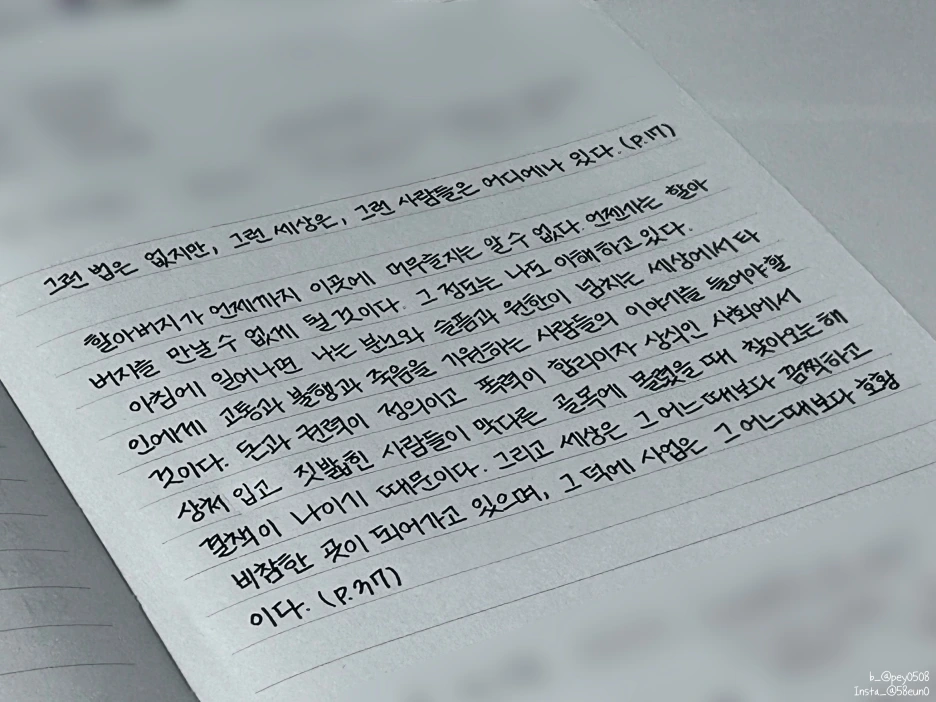 그런 법은 없지만, 그런 세상은, 그런 사람들은 어디에나 있다. (p.17)
할아버지가 언제까지 이곳에 머무를지는 알 수 없다. 언젠가는 할아
버지를 만날 수 없게 될 것이다. 그 정도는 나도 이해하고 있다.
아침에 일어나면 나는 분노와 슬픔과 원한이 넘치는 세상에서 타
인에게 고통과 불행과 죽음을 기원하는 사람들의 이야기를 들어야 할
것이다. 돈과 권력이 정의이고 폭력이 합리이자 상식인 사회에서
상처 입고 짓밟힌 사람들이 막다른 골목에 몰렸을 때 찾아오는 해
결책이 나이기 때문이다. 그리고 세상은 그 어느 때보다 끔찍하고
비참한 곳이 되어가고 있으며, 그 덕에 사업은 그 어느때보다 호황
이다. (p.37)
b_@pey0508
Insta_@58eun0